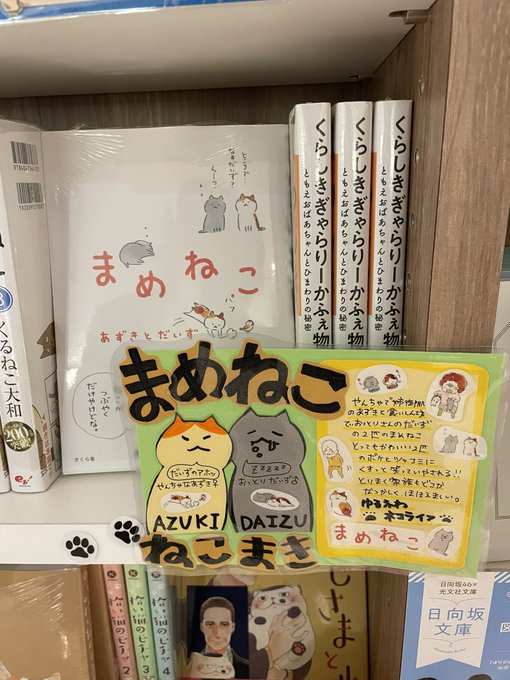 まめねこ
あずきとだいず
なぁだいず?
パフ
つぶやく
だけやけどな。
さくら舎
くるねこ大和
くらしきぎゃらりーかふぇ物
ともえおばあちゃんとひまわりの秘密
くらしきぎゃらりーかふぇ物
ともえおばあちゃんとひまわりの秘密
くらしきぎゃらりーかふぇ物
ともえおばあちゃんとひまわりの秘密
まめねこ
だいずのアホッ
やんちゃなあずき♀
AZUKI
zzzzz
おっとりだいず♂
DAIZU
ねこまき
やんちゃで姉御肌
のあずきと食いしん坊
でおっとりさんのだいず
の2匹のまめねこ
とってもかわいい2匹
のボケとツッコミに
くすっと笑っていやされる!!
とりまく家族もどこか
なつかしく、ほほえましい。
ゆるふわ
ネコライフ
まめねこ
拾い猫のモチャ
2
拾い猫のモチャ
3
拾い猫のモチャ
4
じさまと
日向坂46×
光文社文庫
日向坂
文庫